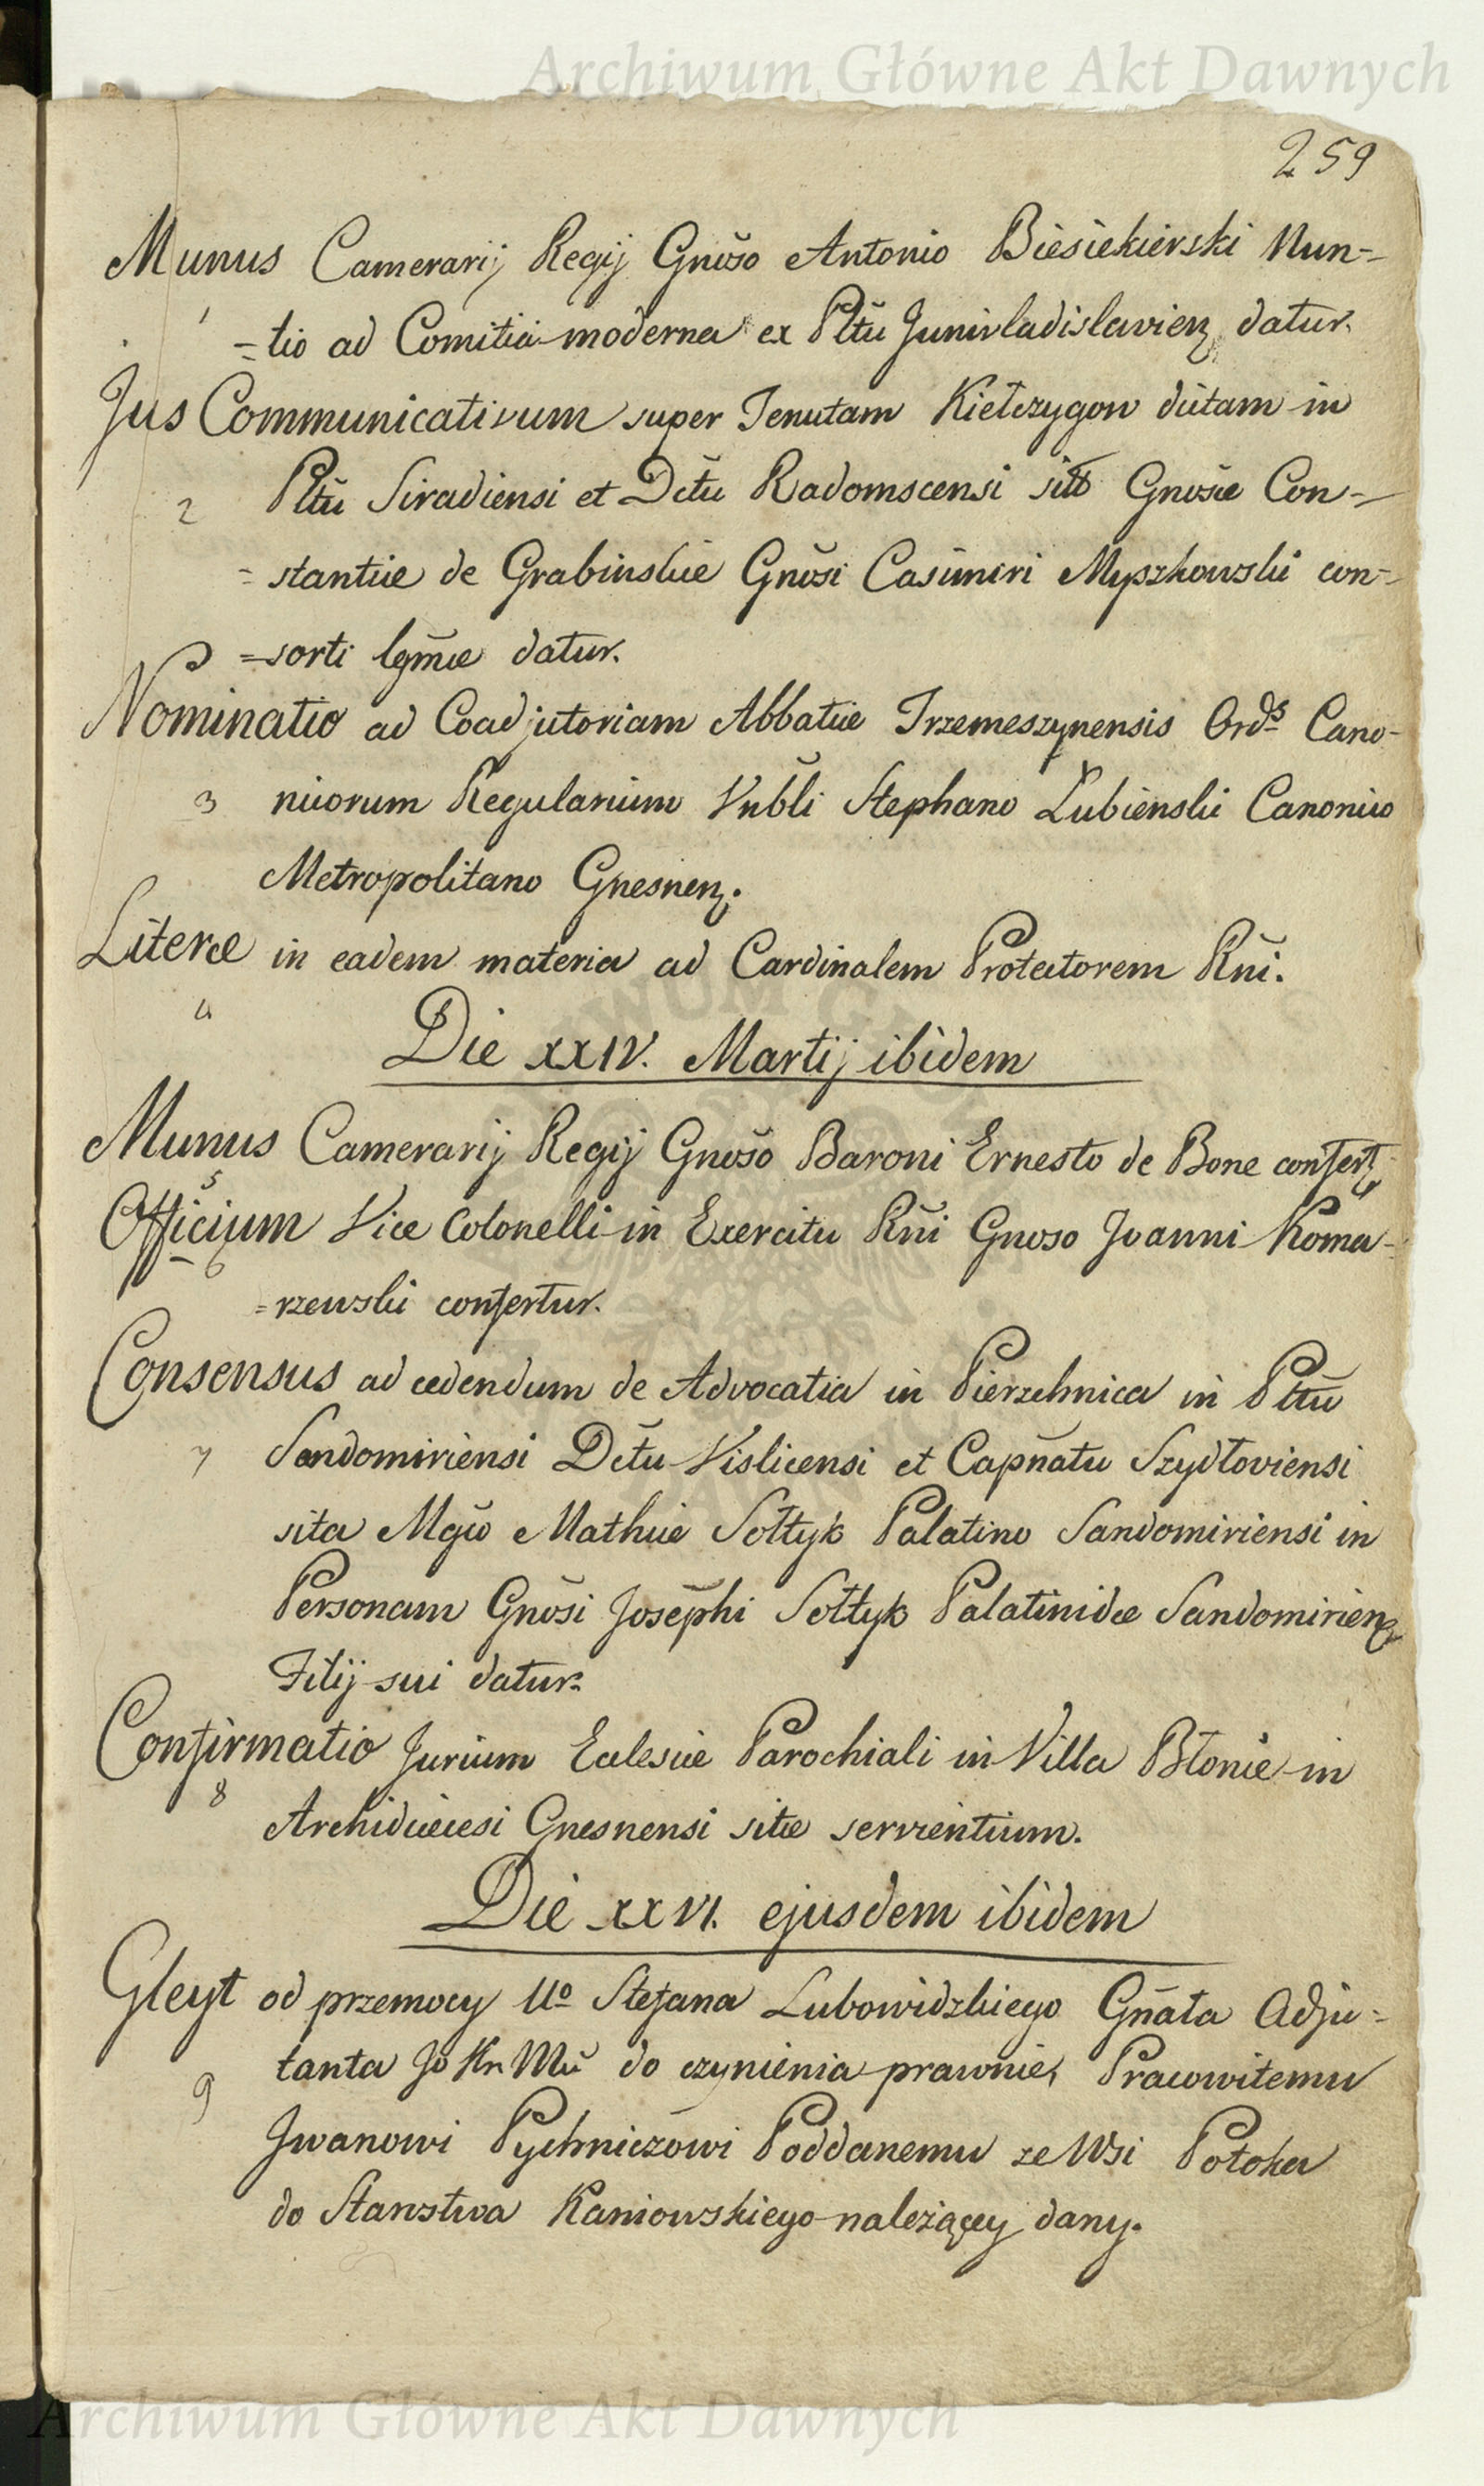 Archiwum Główne Akt Dawnych
259
Munus Camerarij Regij Gnõso Antonio Biesiekierski Nun=
1
=tio ad Comitia moderna ex Pltũ Junivladislavien, datur.
Jus Communicativum super Tenutam Kiełczygow dictam in
2 Pltũ Siradiensi et Dctũ Radomscensi sit̃ Gnõsæ Con=
=stantiæ de Grabinskie Gnõsi Casimiri Myszkowski con=
=sorti lgm̃æ datur.
Nominatio ad Coadjutoriam Abbatiæ Trzemeszynensis Ordˢ Cano-
3 nicorum Regularium Vnb̃li Stephano Łubienski Canonico
Metropolitano Gnesnen.
Literæ in eadem materia ad Cardinalem Protectorem Rñi.
4
Die XXIV. Martij ibidem
Munus Camerarij Regij Gnõso Baroni Ernesto de Bone confert,
5
Officium Vice Colonelli in Exercitu Rñi Gnoso Joanni Koma=
6
=rzewski confertur.
Consensus ad cedendum de Advocatia in Pierzchnica in Pltũ
7 Sandomiriensi Dctũ Vislicensi et Capñatu Szydłoviensi
sita Mgõ Mathiæ Sołtyk Palatino Sandomiriensi in
Personam Gnõsi Josephi Sołtyk Palatinidæ Sandomirien,
Filij sui datur.
Confirmatio Jurium Ecclesiæ Parochiali in Villa Błonie in
8
Archidiæcesi Gnesnensi sitæ servientium.
Die XXVI. ejusdem ibidem
Gleyt od przemocy Uº Stefana Lubowidzkiego Gñała Adju=
9 tanta Jo Kr Mci do czynienia prawnie, Pracowitemu
Jwanowi Pychniczowi Poddanemu ze Wsi Potoka
do Starostwa Kaniowskiego należącey dany.
Archiwum Główne Akt Dawnych